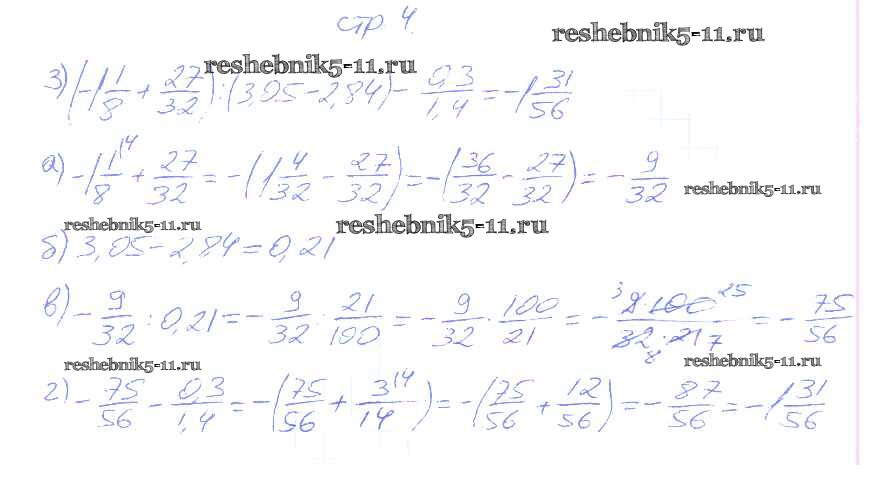 стр 4.
reshebnik5-11.ru
reshebnik5-11.ru
3) (-1 1/8 + 27/32) : (3,05 - 2,84) - 0,3/1,4 = -1 31/56
а) -1 1/8 ^14 + 27/32 = -(1 4/32 - 27/32) = -(36/32 - 27/32) = - 9/32
reshebnik5-11.ru
reshebnik5-11.ru
reshebnik5-11.ru
б) 3,05 - 2,84 = 0,21
в) - 9/32 : 0,21 = - 9/32 : 21/100 = - 9/32 · 100/21 = - ^3 9 · 100 ^25 / 32 8 · 21 7 = - 75/56
reshebnik5-11.ru
reshebnik5-11.ru
г) - 75/56 - 0,3/1,4 = -(75/56 + 3 ^14/14) = -(75/56 + 12/56) = - 87/56 = -1 31/56